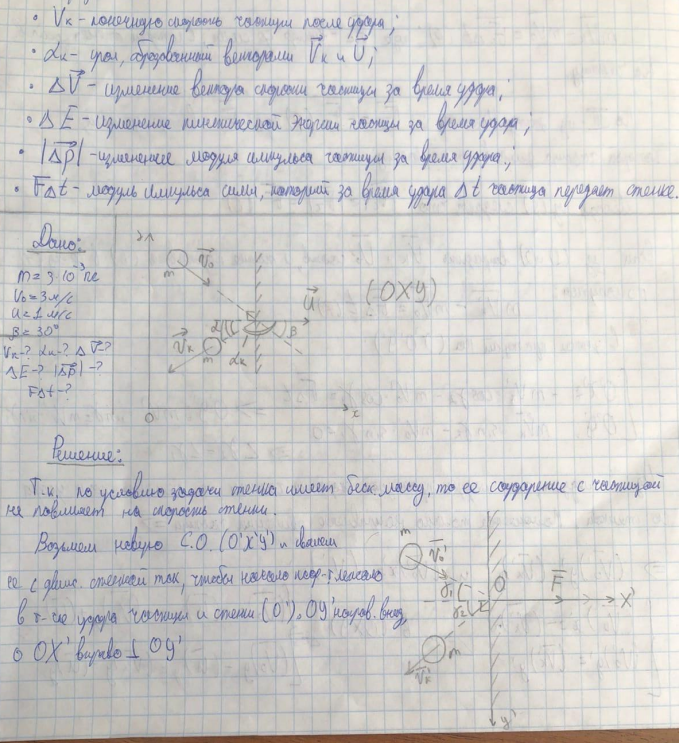 • Vк - конечную скорость частицы после удара;
• αк - угол, образованный векторами V⃗к и U⃗;
• ΔV⃗ - изменение вектора скорости частицы за время удара;
• ΔE - изменение кинетической энергии частицы за время удара;
• |Δp⃗| - изменение модуля импульса частицы за время удара;
• FΔt - модуль импульса силы, который за время удара Δt частица передает стенке.
Дано:
m = 3·10⁻³ кг
V₀ = 3 м/с
U = 1 м/с
β = 30°
Vк-? αк-? ΔV-?
ΔE-? |Δp⃗|-?
FΔt-?
y
m
V⃗₀
U⃗
(OXY)
β
V⃗к
m
αк
0
x
Решение:
Т.к. по условию задачи стенка имеет беск. массу, то ее соударение с частицой
не повлияет на скорость стенки.
Возьмем новую С.О. (O'X'Y') и свяжем
ее с движ. стенкой так, чтобы начало коор-т лежало
в т-ке удара частицы и стенки (O'), OY' направ. вниз,
а OX' вправо ⊥ OY'
m
V⃗₀'
O'
F⃗
X'
γ₁
γ₂
m
V⃗к'
y'